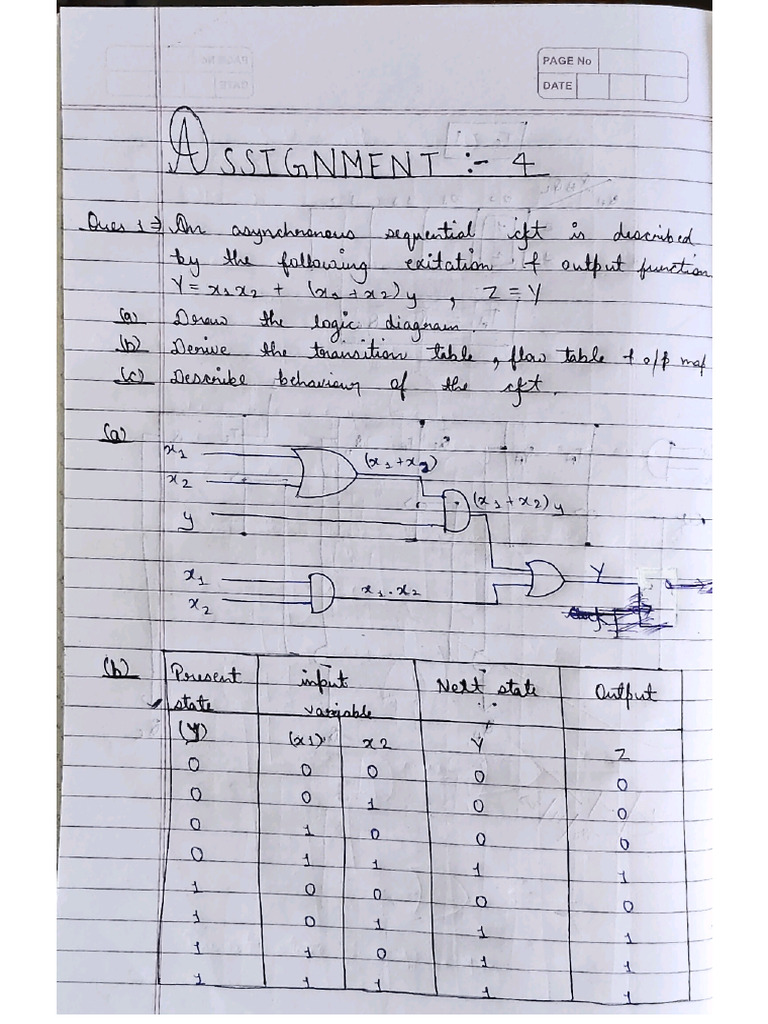 PAGE No
DATE
ASSIGNMENT :- 4
Ques 1 ⇒ An asynchronous sequential ckt is described
by the following exitation & output function
Y = x1x2 + (x1 + x2) y , Z = Y
(a) Draw the logic diagram.
(b) Derive the transition table, flow table & o/p map
(c) Describe behaviour of the ckt.
(a)
x1
x2
(x1 + x2)
y
(x1 + x2) y
x1
x2
x1 . x2
Y
(b) Present state input variable Next state Output
(y) (x1) x2 Y Z
0 0 0 0 0
0 0 1 0 0
0 1 0 0 0
0 1 1 1 1
1 0 0 0 0
1 0 1 1 1
1 1 0 1 1
1 1 1 1 1